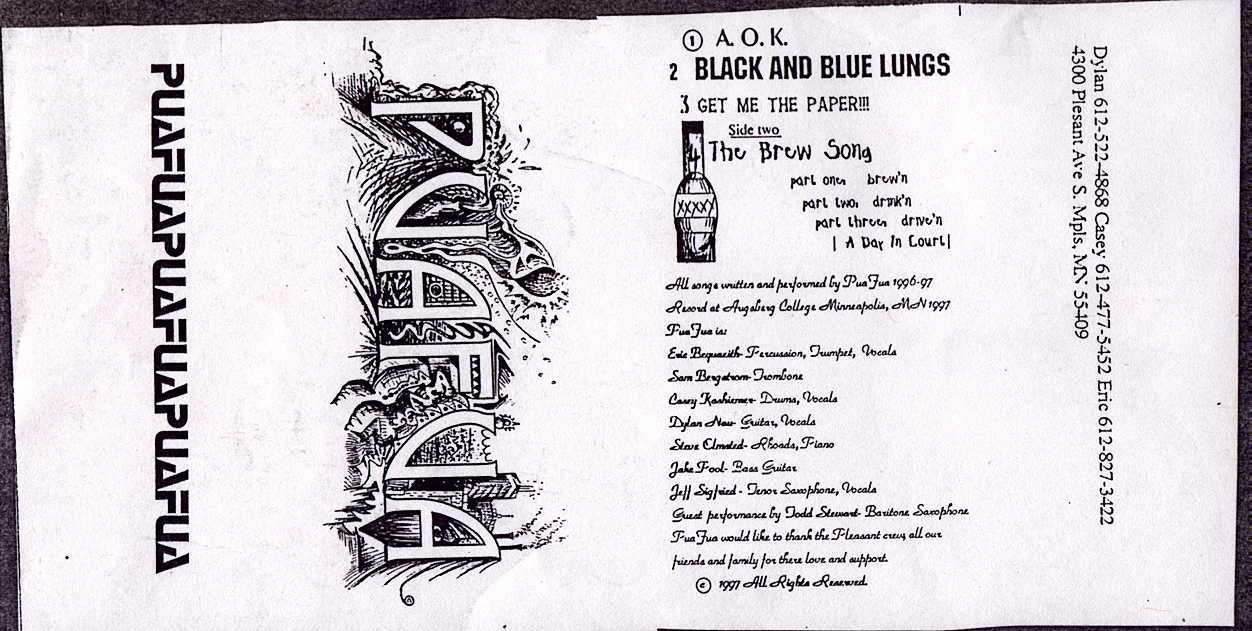 PUAFUAPUAFUAPUAFUA
PUAFUA
① A. O. K.
2 BLACK AND BLUE LUNGS
3 GET ME THE PAPER!!!
Side two
4 The Brew Song
part one: brew'n
part two: drink'n
part three: drive'n
| A Day In Court |
All songs written and performed by PuaFua 1996-97
Record at Augsberg College Minneapolis, MN 1997
PuaFua is:
Eric - Percussion, Trumpet, Vocals
Sam Bergstrom- Trombone
Casey - Drums, Vocals
Dylan - Guitar, Vocals
Steve - Rhoads, Piano
Jake Fool- Bass Guitar
Jeff Sigfried - Tenor Saxophone, Vocals
Guest performance by Todd Stewart- Baritone Saxophone
PuaFua would like to thank the Pleasant crew, all our
friends and family for there love and support.
© 1997 All Rights Reserved.
Dylan 612-522-4868 Casey 612-477-5452 Eric 612-827-3422
4300 Plesant Ave S. Mpls, MN 55409